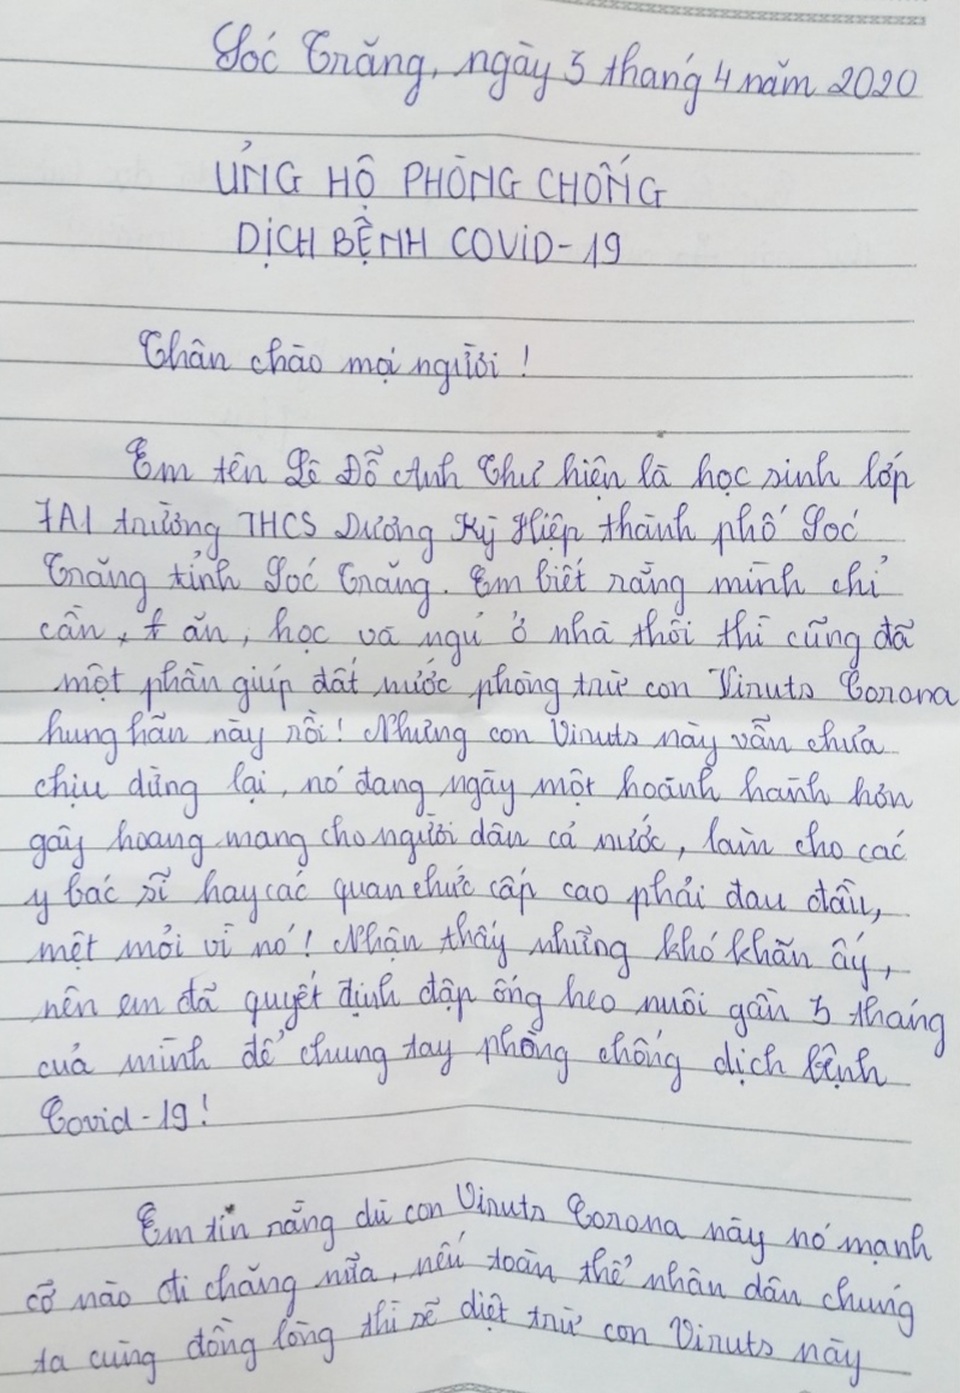 Sóc Trăng, ngày 3 tháng 4 năm 2020
ỦNG HỘ PHÒNG CHỐNG
DỊCH BỆNH COVID-19
Thân chào mọi người !
Em tên Lê Đỗ Anh Thư hiện là học sinh lớp
7A1 trường THCS Dương Kỳ Hiệp thành phố Sóc
Trăng tỉnh Sóc Trăng. Em biết rằng mình chỉ
cần, ăn, học và ngủ ở nhà thôi thì cũng đã
một phần giúp đất nước phòng trừ con Viruts Corona
hung hãn này rồi! Nhưng con Viruts này vẫn chưa
chịu dừng lại, nó đang ngày một hoành hành hơn
gây hoang mang cho người dân cả nước, làm cho các
y bác sĩ hay các quan chức cấp cao phải đau đầu,
mệt mỏi vì nó! Nhận thấy những khó khăn ấy,
nên em đã quyết định đập ống heo nuôi gần 3 tháng
của mình để chung tay phòng chống dịch bệnh
Covid-19!
Em tin rằng dù con Viruts Corona này nó mạnh
cỡ nào đi chăng nữa, nếu toàn thể nhân dân chúng
ta cùng đồng lòng thì sẽ diệt trừ con Viruts này